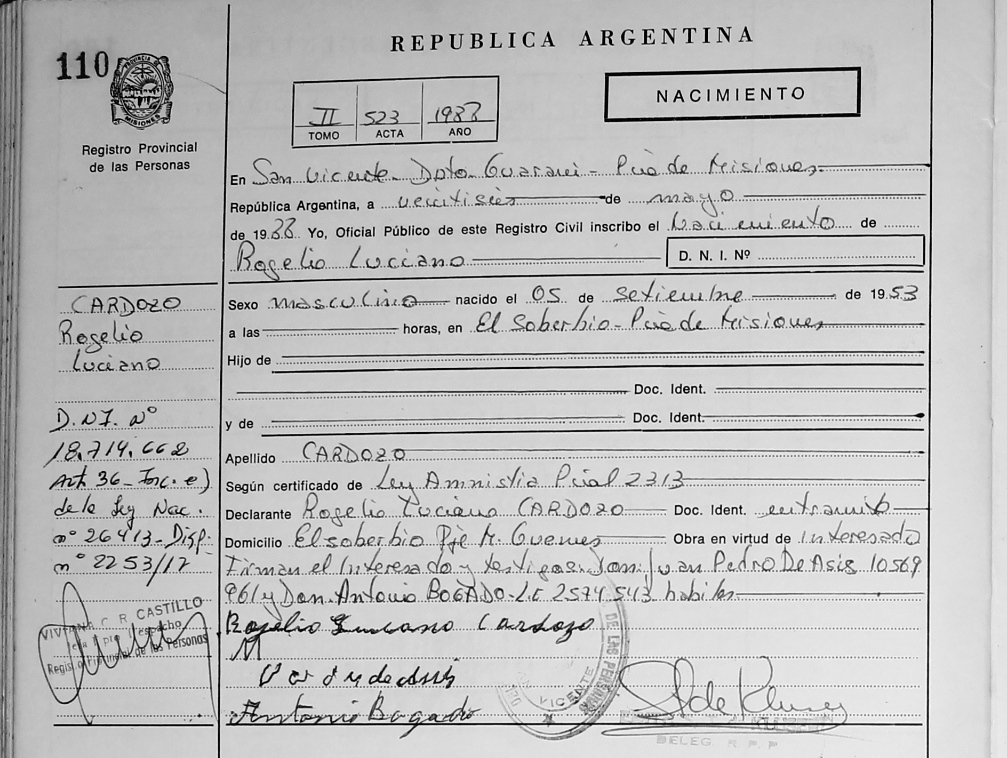 110
REPUBLICA ARGENTINA
PROVINCIA DE MISIONES
Registro Provincial
de las Personas
II 523 1988
TOMO ACTA AÑO
NACIMIENTO
En San Vicente - Dpto Guarani - Pcia de Misiones
República Argentina, a veintiseis de mayo
de 1988 Yo, Oficial Público de este Registro Civil inscribo el Nacimiento de
Rogelio Luciano
D. N. I. Nº
Sexo masculino nacido el 05 de setiembre de 1953
a las horas, en El Soberbio - Pcia de Misiones
Hijo de
Doc. Ident.
y de Doc. Ident.
Apellido CARDOZO
Según certificado de Ley Amnistia Pcial 2313
Declarante Rogelio Luciano CARDOZO Doc. Ident. en tramite
Domicilio El soberbio Pje M. Guemes Obra en virtud de Interesado
Firman el Interesado y testigos. Don Juan Pedro De Asis 10569
961 y Don Antonio BOGADO - LE 2574543 habiles
Rogelio Luciano Cardozo
Antonio Bogado
CARDOZO
Rogelio
Luciano
D.N.I. Nº
18.714.662
Art 36 - Inc. e)
de la Ley Nac.
nº 26413 - Disp.
nº 2253/17
R. CASTILLO
Despacho
Provincial de las Personas
DE LAS PERSONAS
VICENTE
DELEG. R. P. P